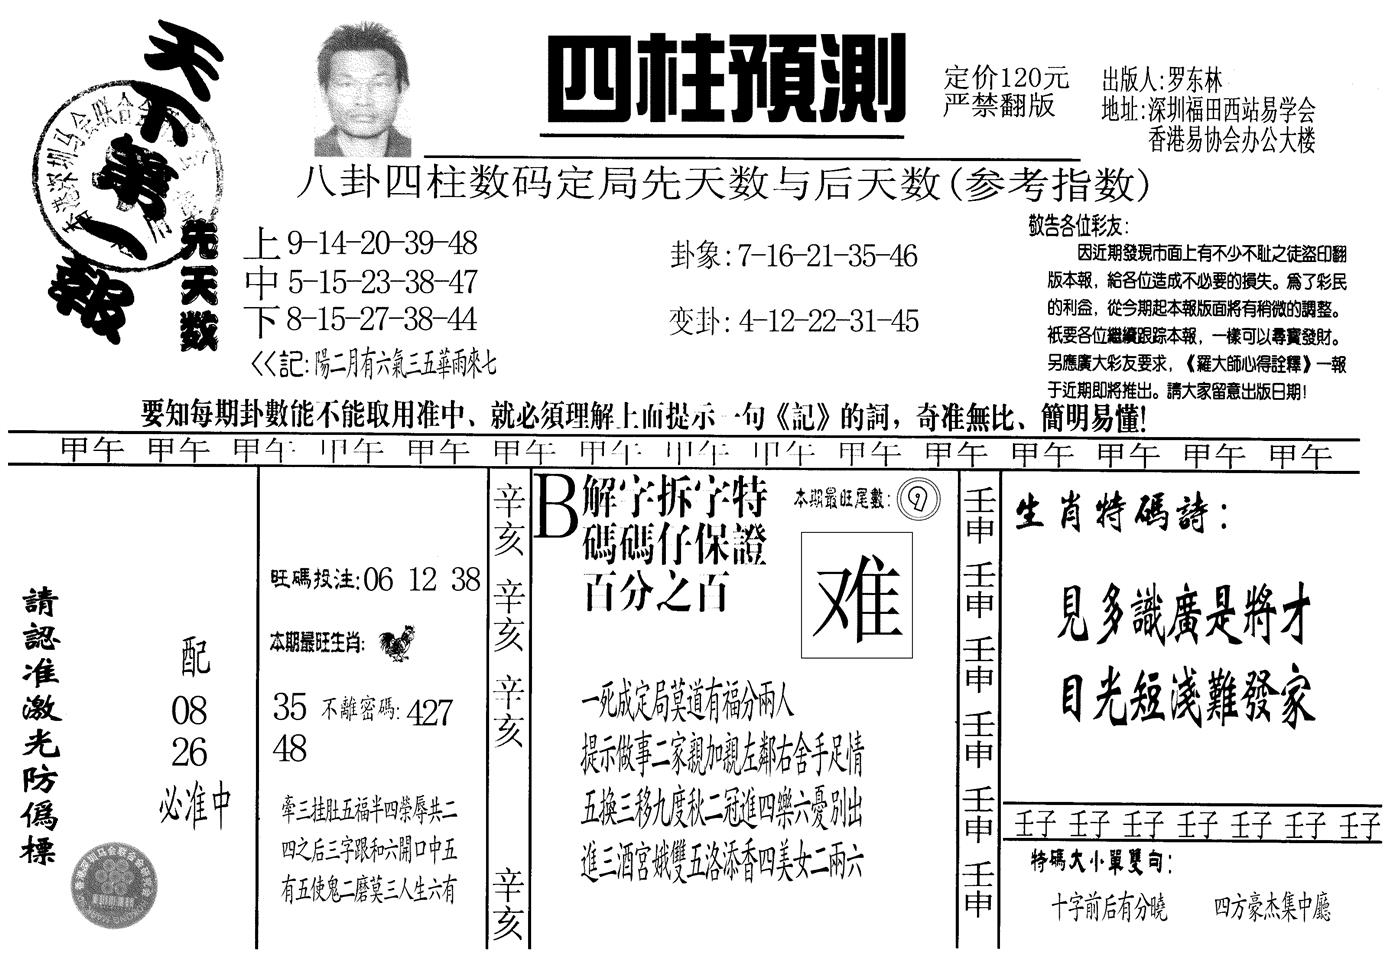 天下第一報
四柱預測
定价120元
严禁翻版
出版人:罗东林
地址:深圳福田西站易学会
香港易协会办公大楼
八卦四柱数码定局先天数与后天数(参考指数)
先天数
上 9-14-20-39-48
中 5-15-23-38-47
下 8-15-27-38-44
<<記:陽二月有六氣三五華雨來七
卦象:7-16-21-35-46
变卦:4-12-22-31-45
敬告各位彩友:
因近期發現市面上有不少不耻之徒盜印翻
版本報，給各位造成不必要的損失。為了彩民
的利益，從今期起本報版面將有稍微的調整。
衹要各位繼續跟踪本報，一樣可以尋寶發財。
另應廣大彩友要求，《羅大師心得詮釋》一報
于近期即將推出。請大家留意出版日期!
要知每期卦數能不能取用准中、就必須理解上面提示一句《記》的詞，奇准無比、簡明易懂!
甲午 甲午 甲午 甲午 甲午 甲午 甲午 甲午 甲午 甲午 甲午 甲午 甲午 甲午 甲午
請認准激光防僞標
配
08
26
必准中
旺碼投注:06 12 38
本期最旺生肖:
35 不離密碼:427
48
牽三挂肚五福半四榮辱共二
四之后三字跟和六開口中五
有五使鬼二磨莫三人生六有
辛亥 辛亥 辛亥 辛亥
B解字拆字特
碼碼仔保證
百分之百
本期最旺尾數:9
难
一死成定局莫道有福分兩人
提示做事二家親加親左鄰右舍手足情
五換三移九度秋二冠進四樂六憂別出
進三酒宮娥雙五洛添香四美女二兩六
壬申 壬申 壬申 壬申 壬申 壬申
生肖特碼詩:
見多識廣是將才
目光短淺難發家
壬子 壬子 壬子 壬子 壬子 壬子 壬子
特碼大小單雙句:
十字前后有分曉 四方豪杰集中廳